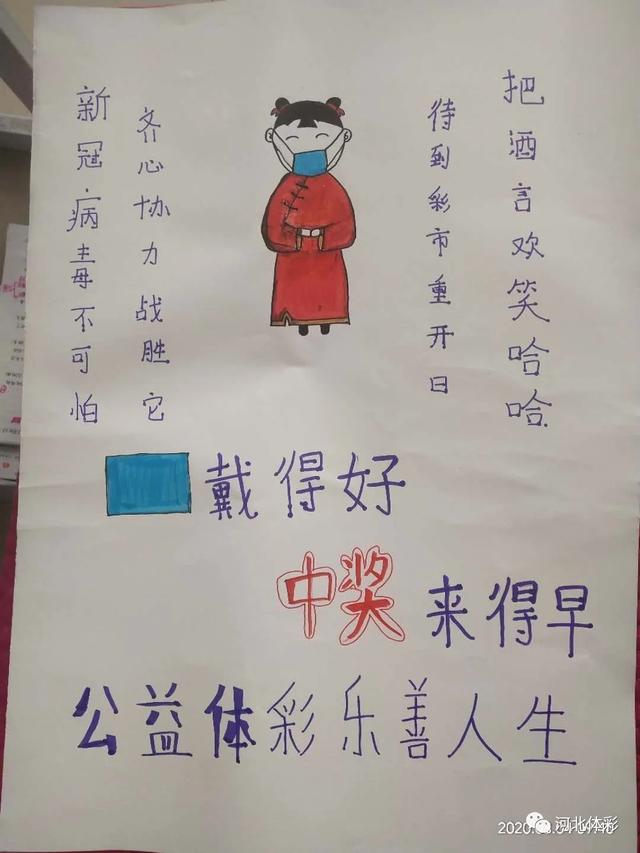 新冠病毒不可怕
齐心协力战胜它
待到彩市重开日
把酒言欢笑哈哈
戴得好
中奖来得早
公益体彩乐善人生
河北体彩